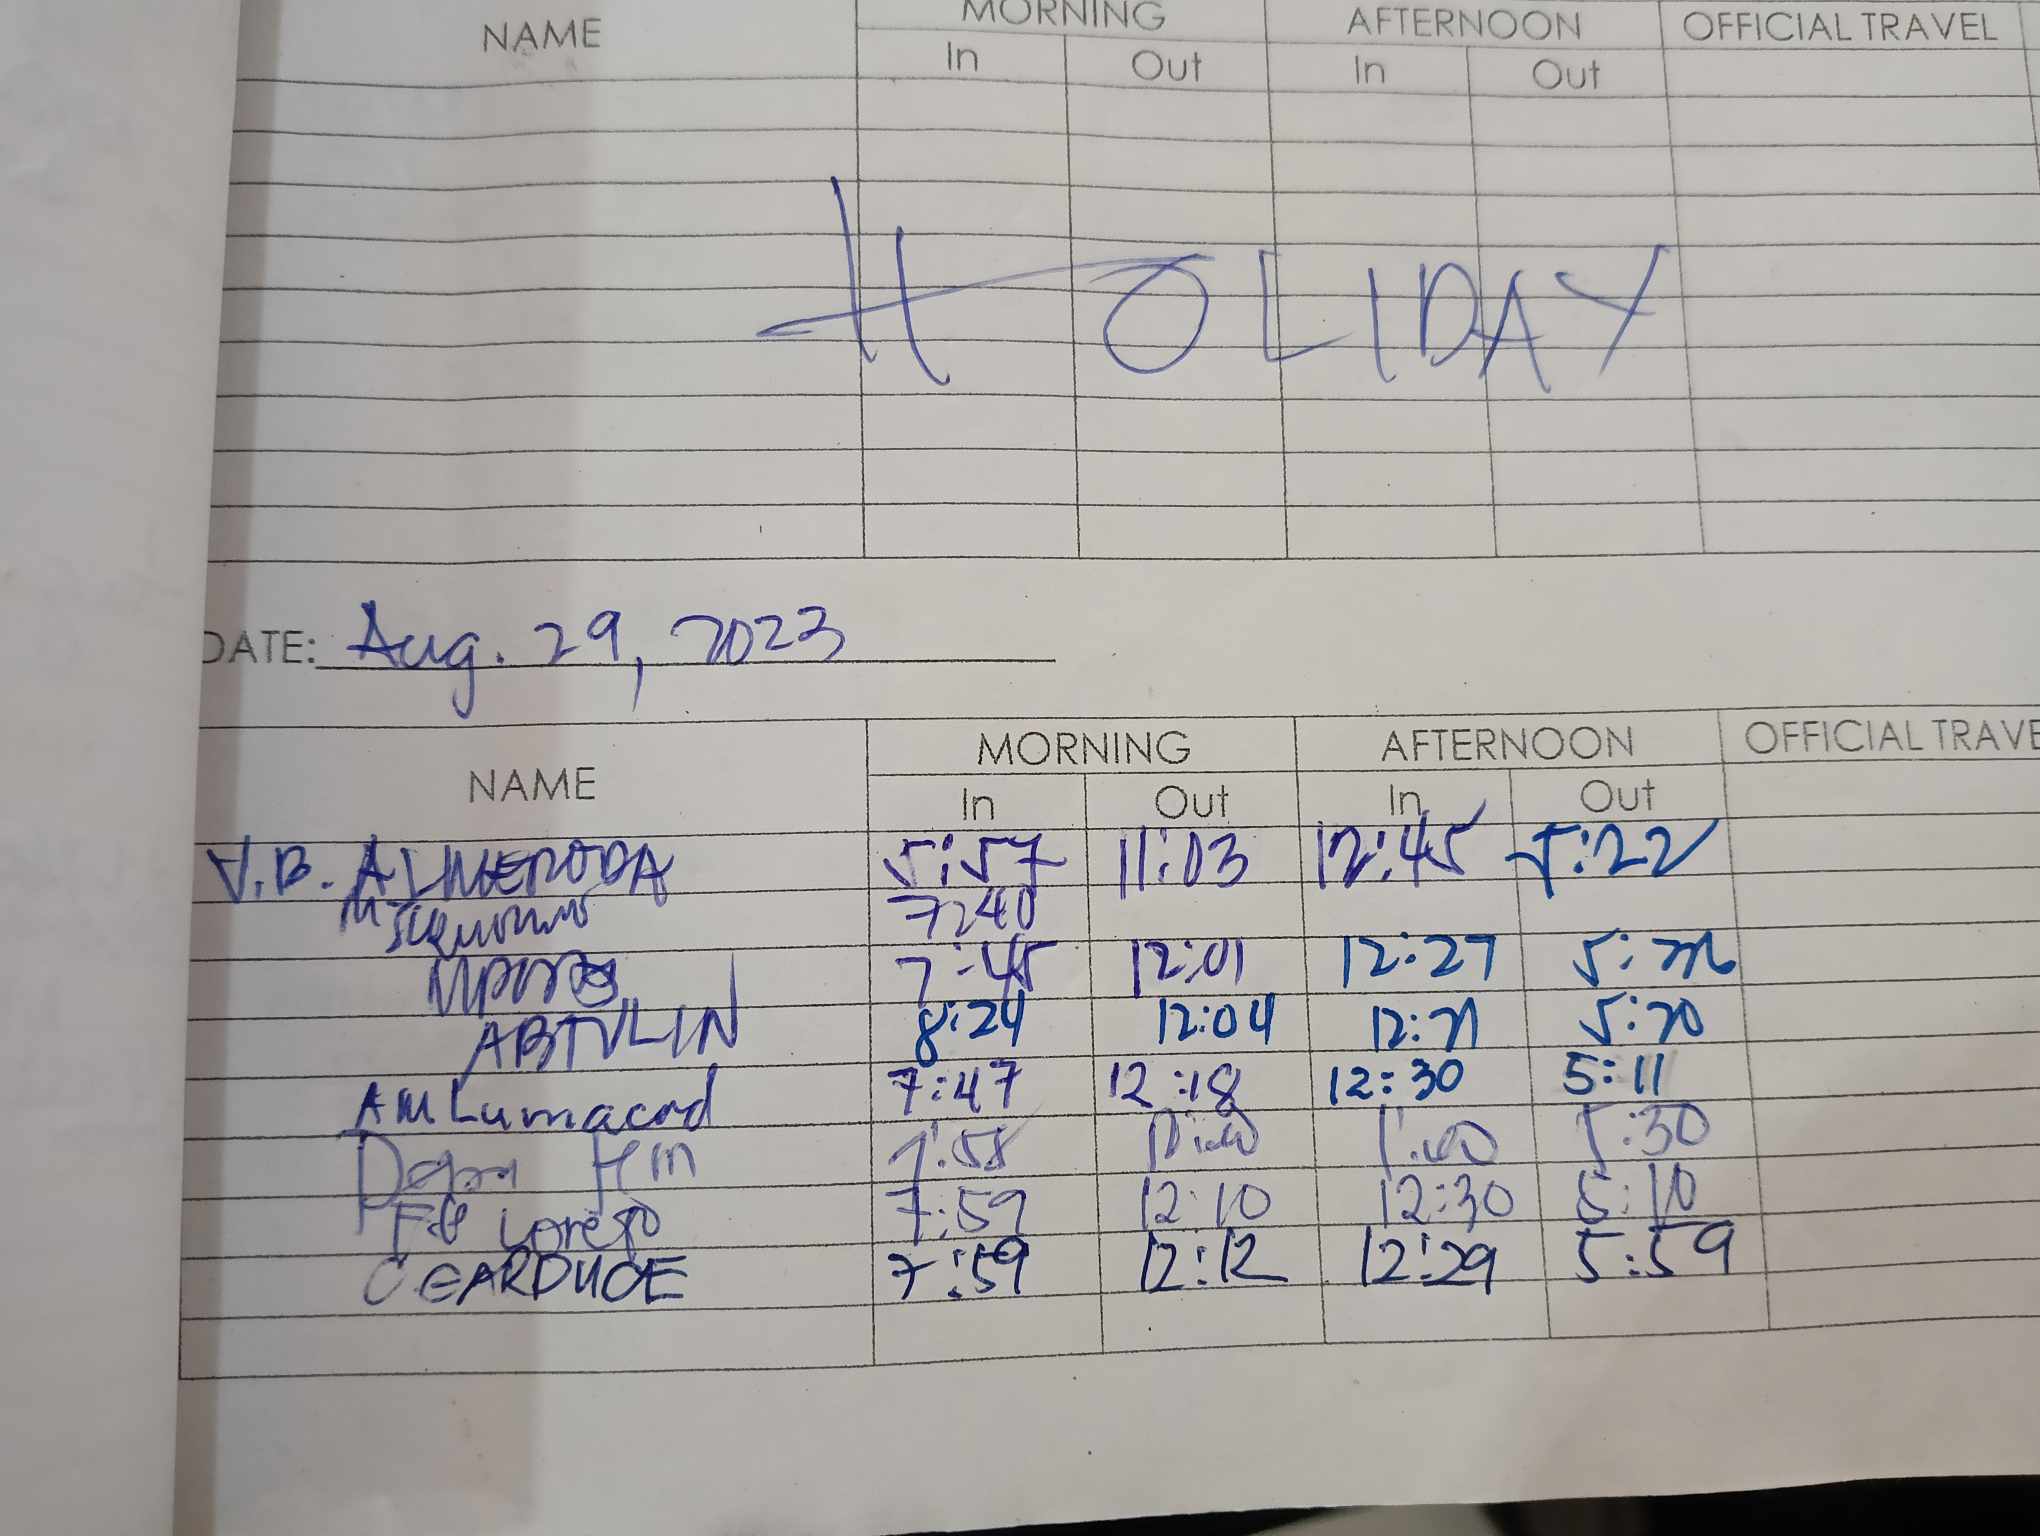 NAME MORNING AFTERNOON OFFICIAL TRAVEL
In Out In Out
HOLIDAY
DATE: Aug. 29, 2023
NAME MORNING AFTERNOON OFFICIAL TRAVE
In Out In Out
V.B. ALMERODA 5:57 11:03 12:45 5:22
7:40
7:45 12:01 12:27
8:24 12:04 12:21 5:20
AM Lumacad 7:47 12:18 12:30 5:11
7:58 1:00 5:30
Loreto 7:59 12:10 12:30 5:10
C GEARDUOE 7:59 12:12 12:29 5:59